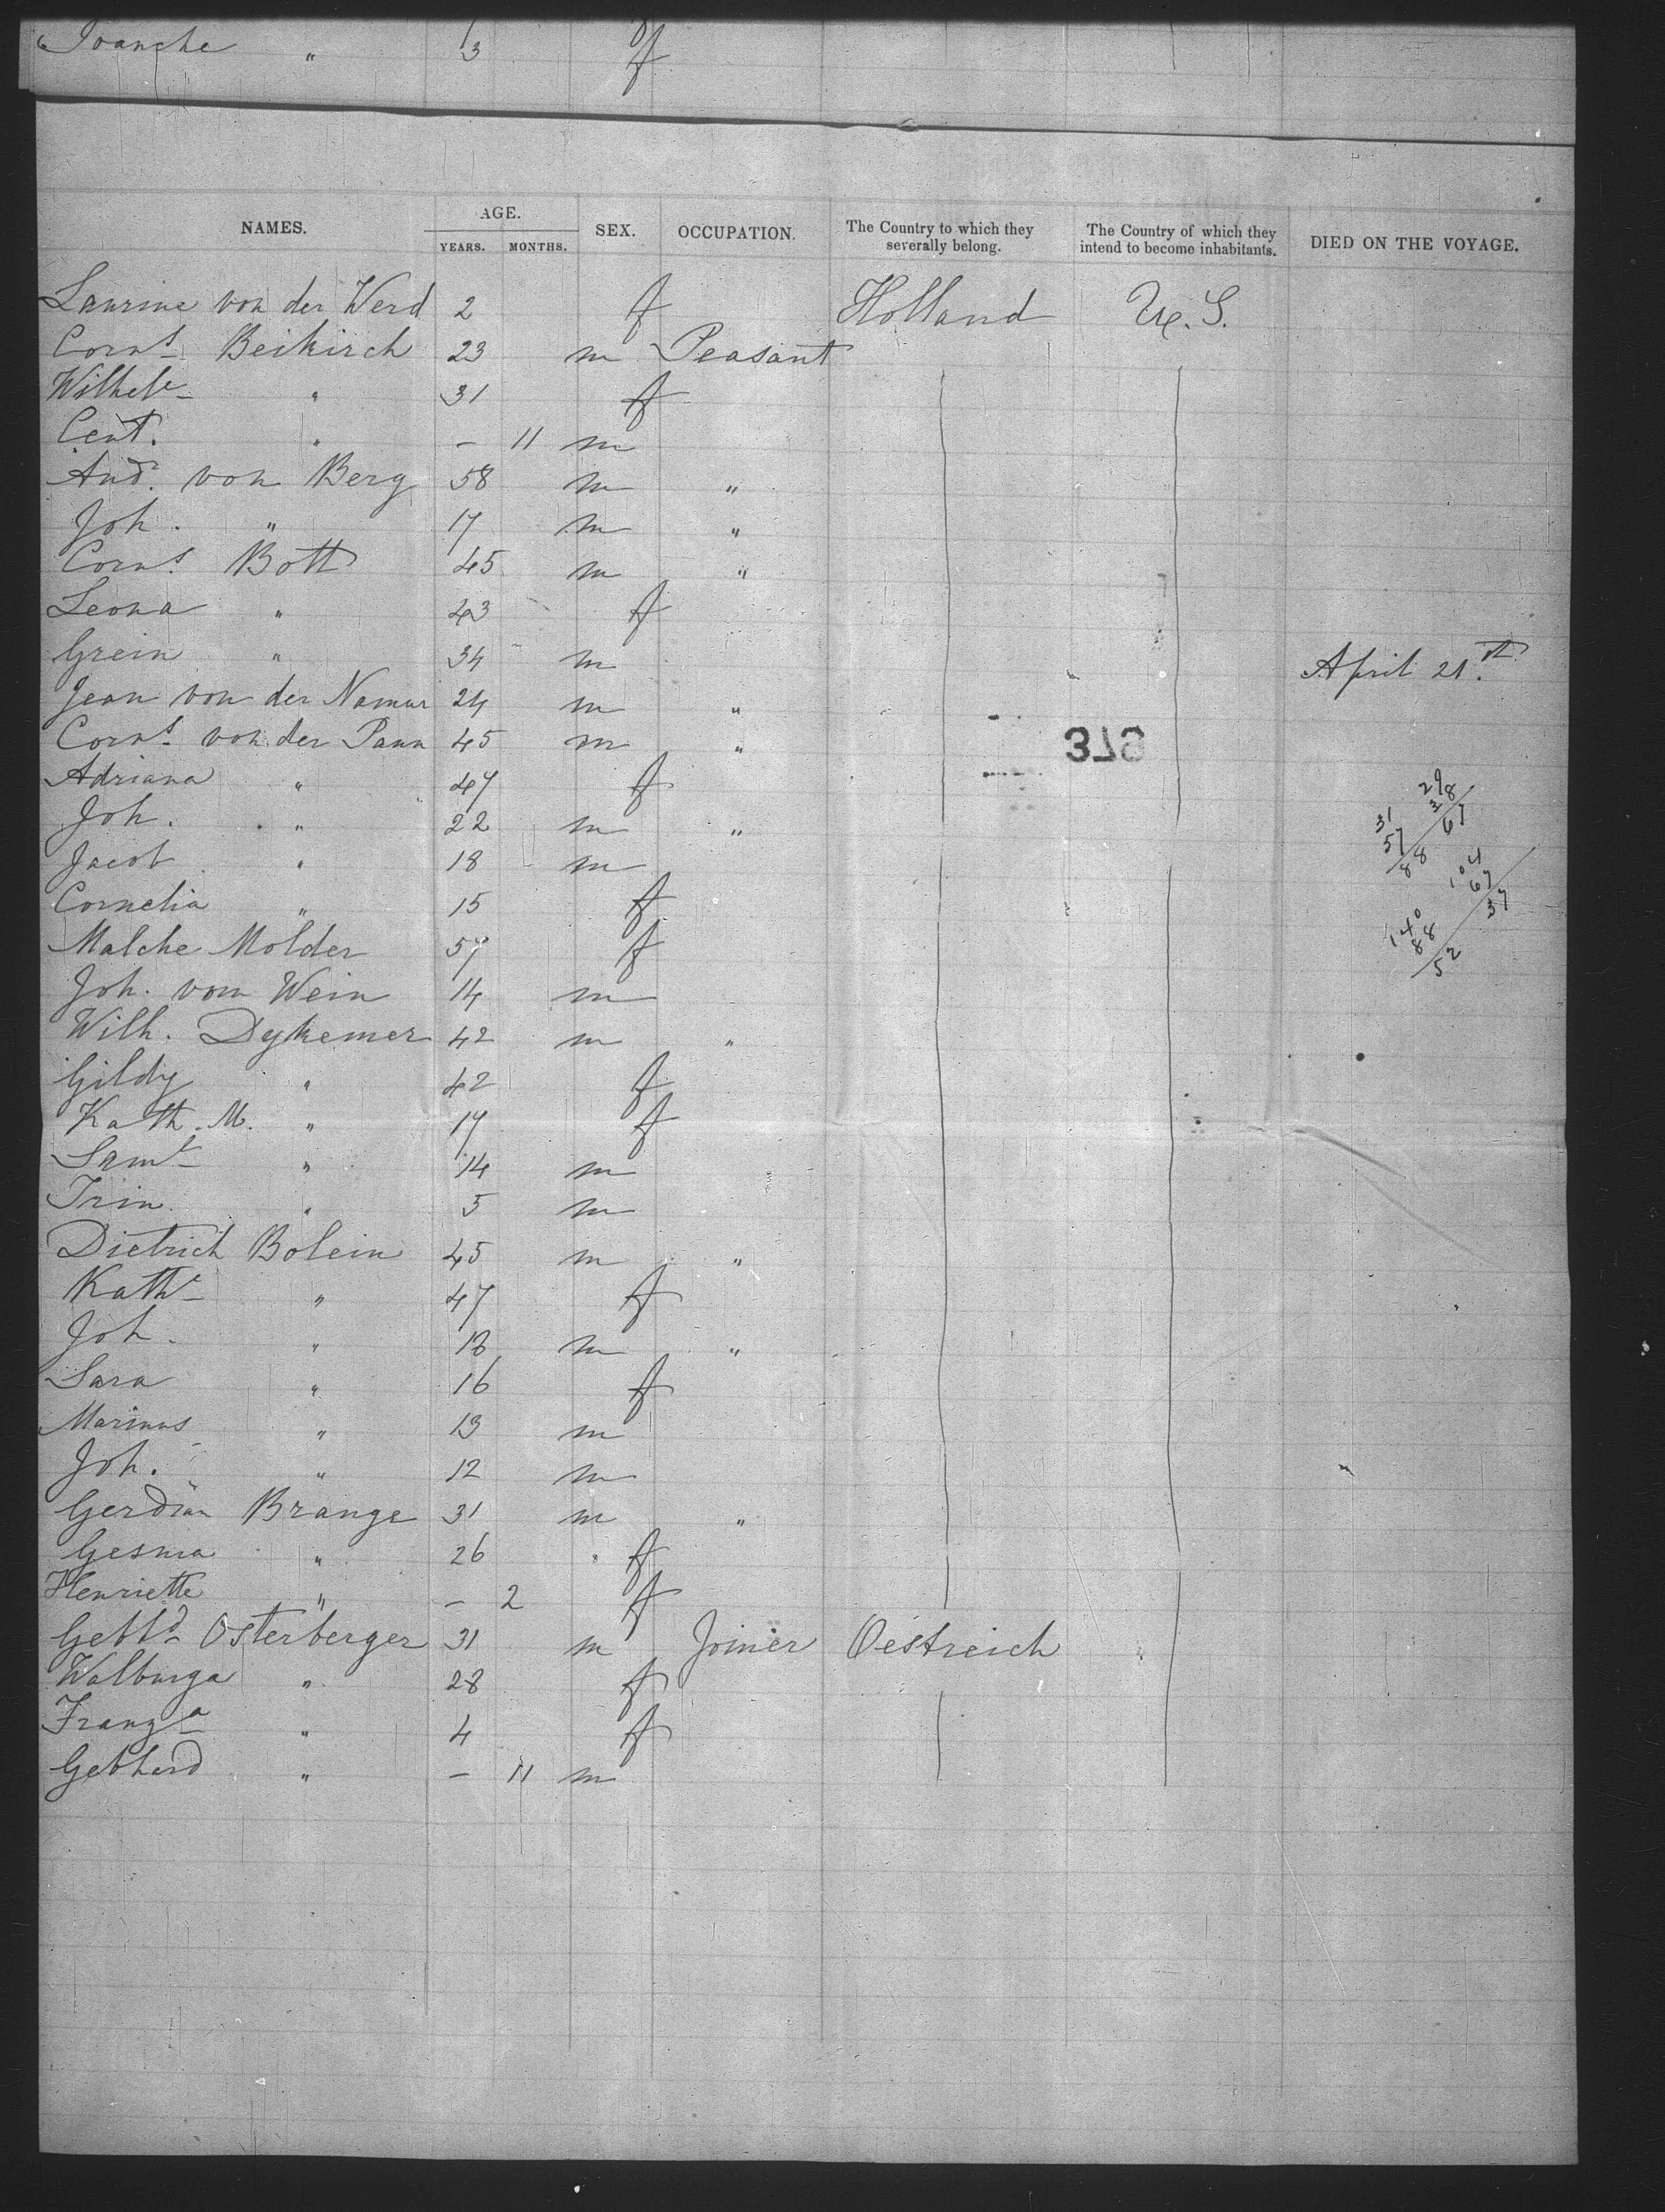 Ivanche " 13 f
NAMES. AGE. YEARS. MONTHS. SEX. OCCUPATION. The Country to which they severally belong. The Country of which they intend to become inhabitants. DIED ON THE VOYAGE.
Laurine von der Werd 2 f Holland U.S.
Corns Beikirch 23 m Peasant
Wilhele " 31 f
Cent. " – 11 m
And. von Berg 58 m "
Joh. " 17 m "
Corns Bott 45 m "
Leona " 43 f
Grein " 34 m April 21st.
Jean von der Namur 24 m "
Corns von der Pann 45 m "
Adriana " 47 f
Joh. " 22 m "
Jacob " 18 m
Cornelia " 15 f
Malche Molder 57 f
Joh. vom Wein 14 m
Wilh. Dykemer 42 m "
Gildy " 42 f
Kath. M. " 17 f
Saml " 14 m
Trin. " 5 m
Dietrich Bolein 45 m "
Kathe " 47 f
Joh. " 18 m "
Sara " 16 f
Marinus " 13 m
Joh. " 12 m
Gerdian Brange 31 m "
Gesina " 26 f
Henriette " – 2 f
Gebhd Osterberger 31 m Joiner Oestreich
Walburga " 28 f
Franza " 4 f
Gebhard " – 11 m
378
29
38
67
31
57
88
104
67
37
140
88
52